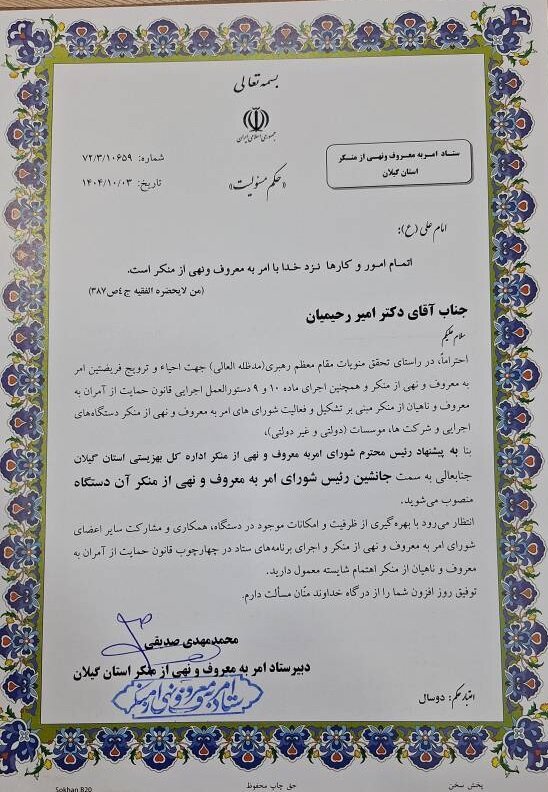 بسمه تعالی
جمهوری اسلامی ایران
ستاد امر به معروف ونهی از منکر
استان گیلان
شماره: ۷۲/۳/۱۰۶۵۹
تاریخ: ۱۴۰۴/۱۰/۰۳
«حکم مسئولیت»
امام علی (ع):
اتمام امور و کارها نزد خدا با امر به معروف ونهی از منکر است.
(من لایحضره الفقیه ج٤ص۳۸۷)
جناب آقای دکتر امیر رحیمیان
سلام علیکم
احتراماً، در راستای تحقق منویات مقام معظم رهبری(مدظله العالی) جهت احیاء و ترویج فریضتین امر
به معروف و نهی از منکر و همچنین اجرای ماده ۱۰ و ۹ دستورالعمل اجرایی قانون حمایت از آمران به
معروف و ناهیان از منکر مبنی بر تشکیل و فعالیت شورای های امر به معروف و نهی از منکر دستگاه‌های
اجرایی و شرکت ها، موسسات (دولتی و غیر دولتی)،
بنا به پیشنهاد رئیس محترم شورای امربه معروف و نهی از منکر اداره کل بهزیستی استان گیلان
جنابعالی به سمت جانشین رئیس شورای امر به معروف و نهی از منکر آن دستگاه
منصوب می‌شوید.
انتظار می‌رود با بهره‌گیری از ظرفیت و امکانات موجود در دستگاه، همکاری و مشارکت سایر اعضای
شورای امر به معروف و نهی از منکر و اجرای برنامه‌های ستاد در چهارچوب قانون حمایت از آمران به
معروف و ناهیان از منکر اهتمام شایسته معمول دارید.
توفیق روز افزون شما را از درگاه خداوند منّان مسألت دارم.
محمدمهدی صدیقی
دبیرستاد امر به معروف و نهی از منکر استان گیلان
ستاد امر به معروف و نهی از منکر
اعتبار حکم: دوسال
پخش سخن
حق چاپ محفوظ
Sokhan B20